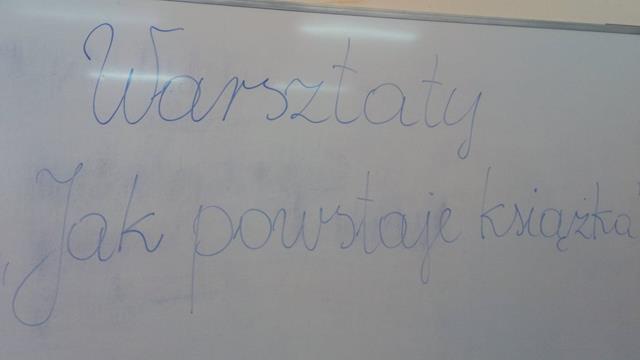 Warsztaty
Jak powstaje książka